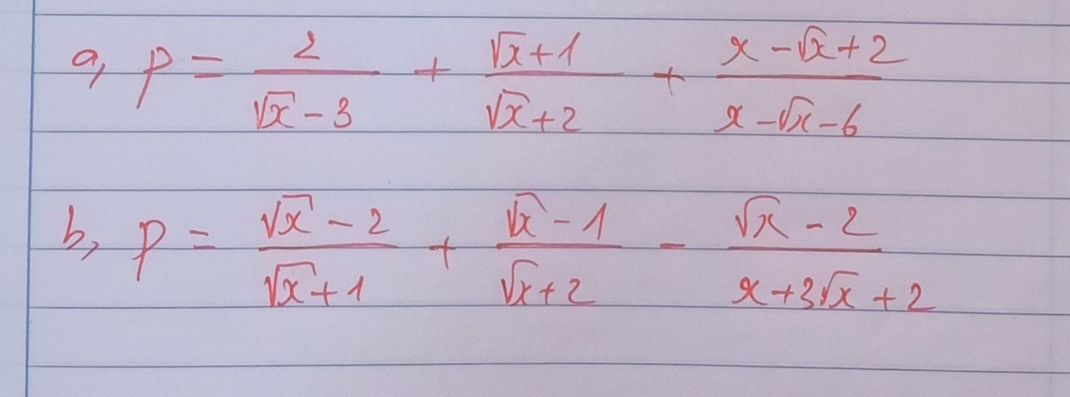 a, P = 2/(√x - 3) + (√x + 1)/(√x + 2) + (x - √x + 2)/(x - √x - 6)
b, P = (√x - 2)/(√x + 1) + (√x - 1)/(√x + 2) - (√x - 2)/(x + 3√x + 2)